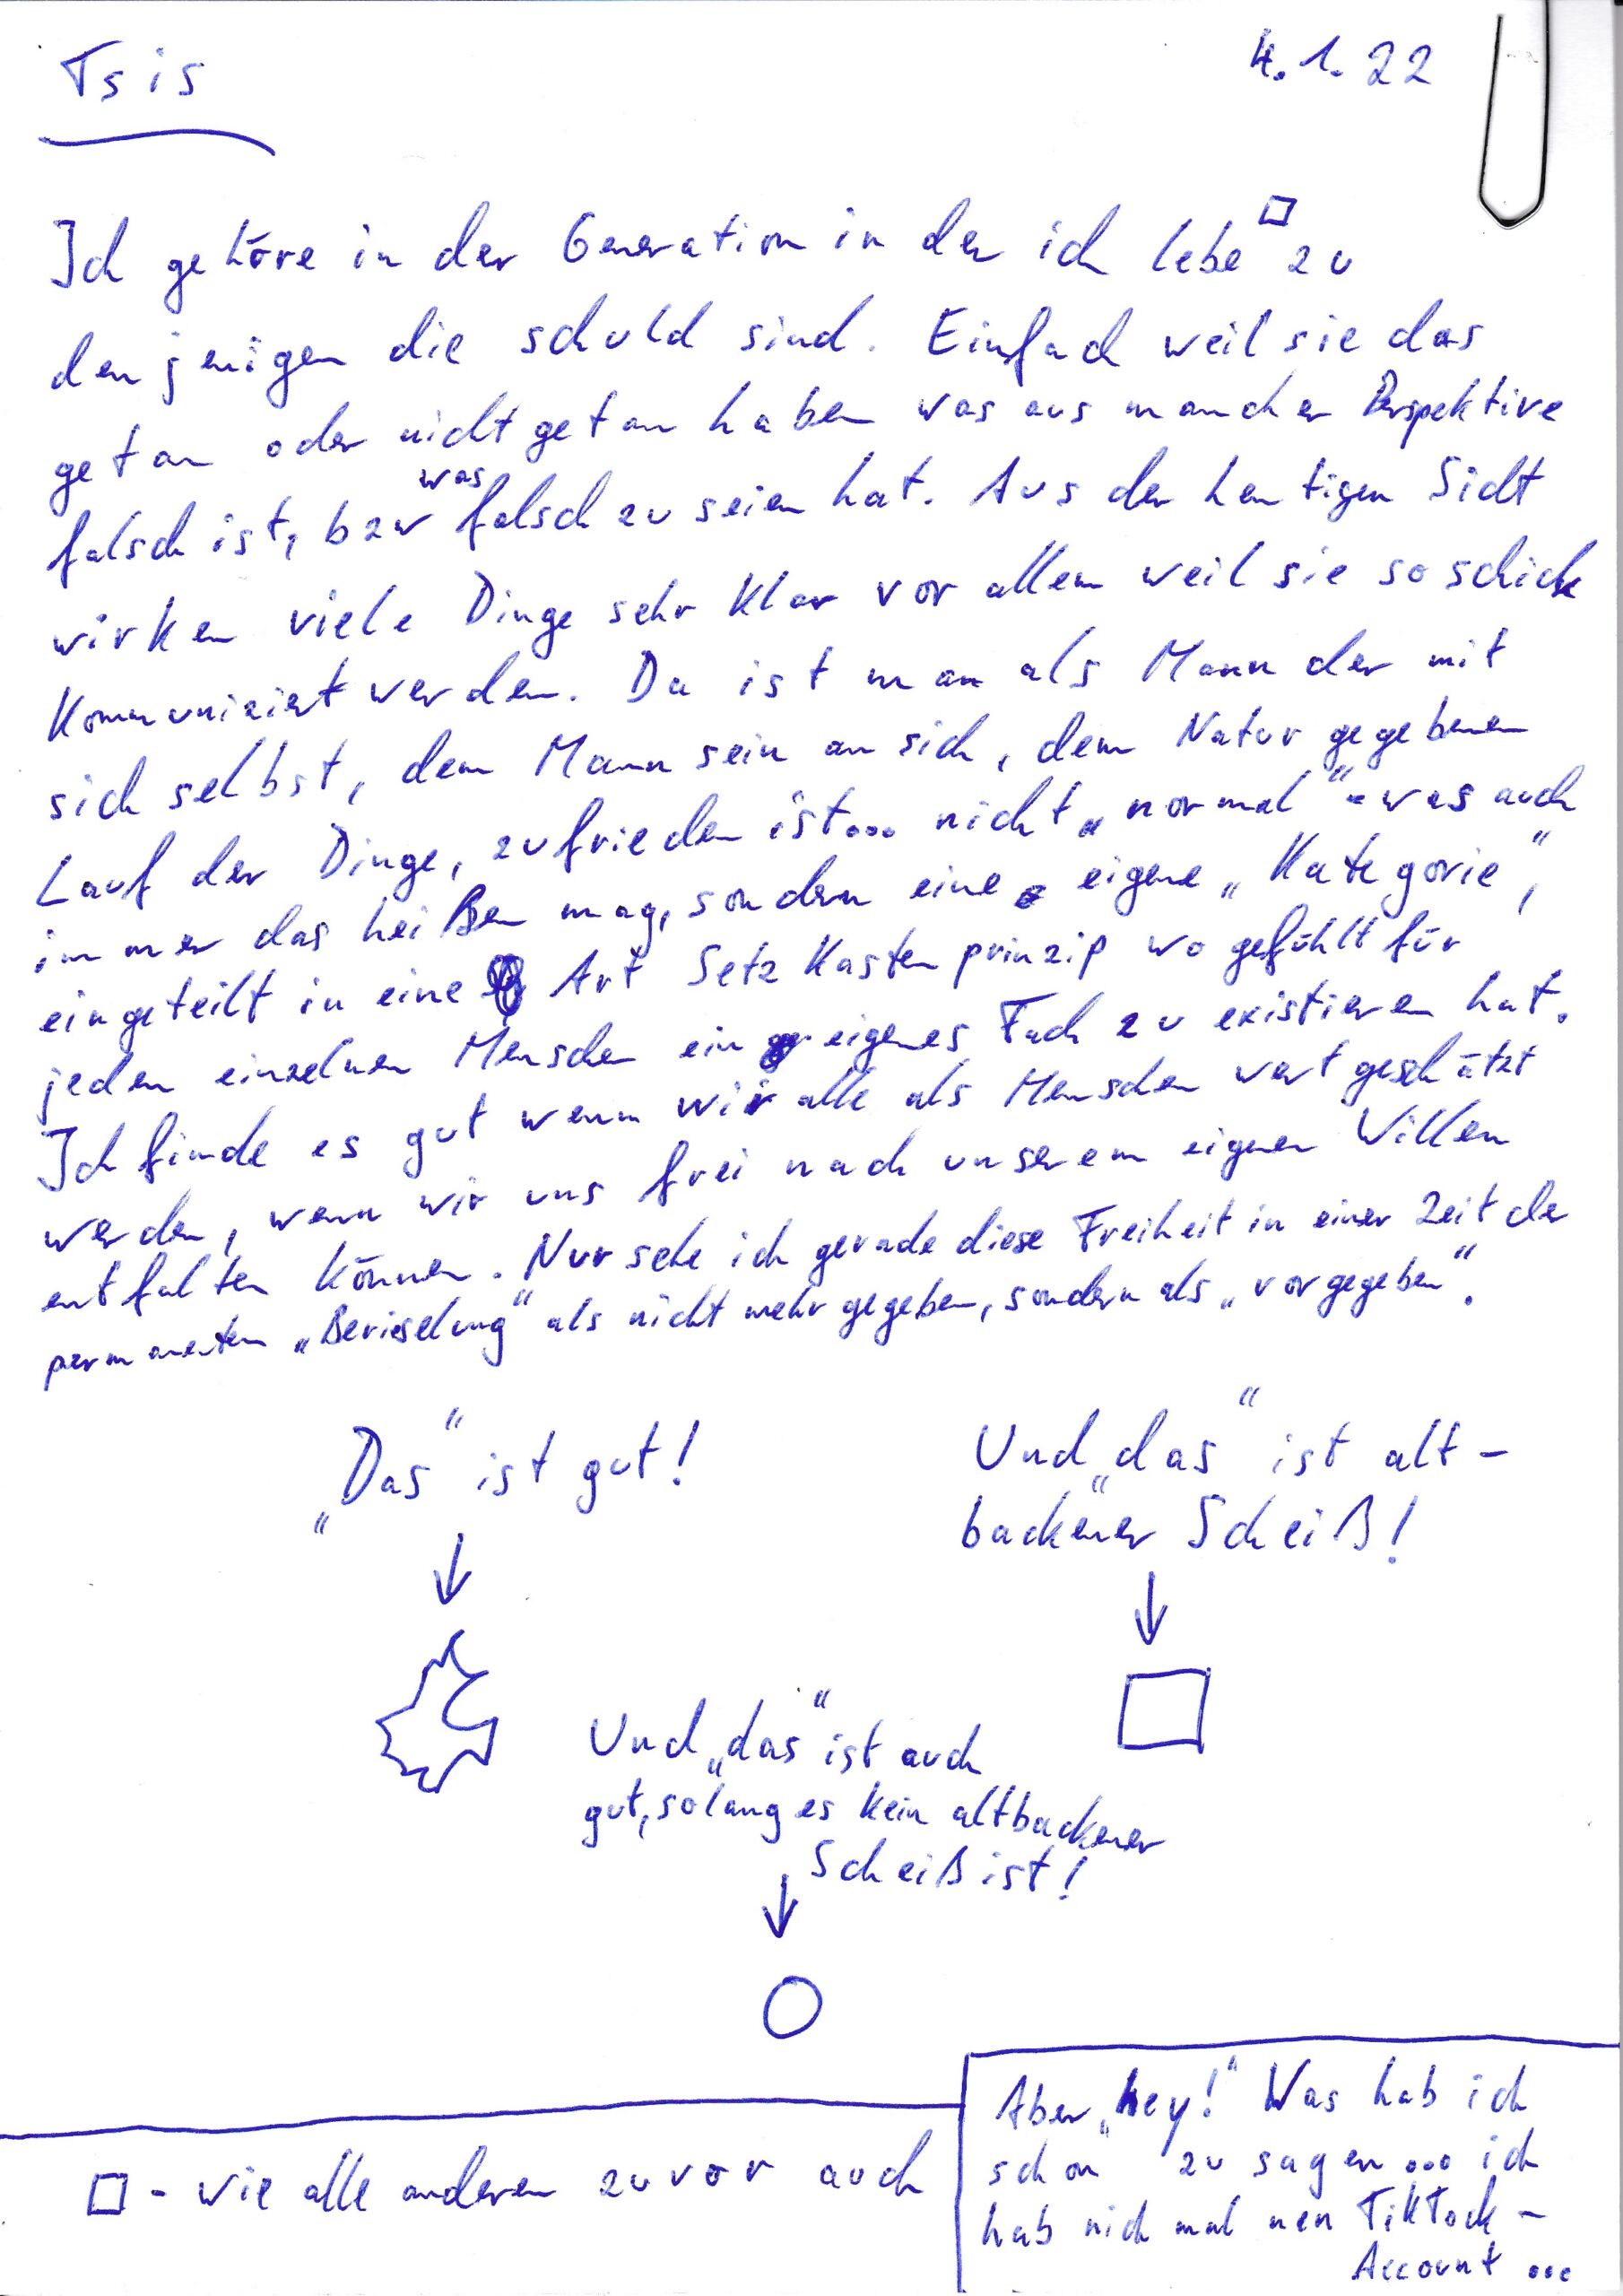 Tsis
4.1.22
Ich gehöre in der Generation in der ich lebe □ zu
denjenigen die schuld sind. Einfach weil sie das
getan oder nicht getan haben was aus mancher Perspektive
falsch ist, bzw was falsch zu seien hat. Aus der heutigen Sicht
wirken viele Dinge sehr klar vor allem weil sie so schick
kommuniziert werden. Da ist man als Mann der mit
sich selbst, dem Mann sein an sich, dem Natur gegebenen
Lauf der Dinge, zufrieden ist... nicht „normal“ - was auch
immer das heißen mag, sondern eine eigene „Kategorie“,
eingeteilt in eine Art Setzkastenprinzip wo gefühlt für
jeden einzelnen Menschen ein eigenes Fach zu existieren hat.
Ich finde es gut wenn wir alle als Menschen wertgeschätzt
werden, wenn wir uns frei nach unserem eigenen Willen
entfalten können. Nur sehe ich gerade diese Freiheit in einer Zeit der
permanenten „Berieselung“ als nicht mehr gegeben, sondern als „vorgegeben“.
„Das“ ist gut!
Und „das“ ist alt-
backener Scheiß!
Und „das“ ist auch
gut, solang es kein altbackener
Scheiß ist!
□ - wie alle anderen zuvor auch
Aber „hey!“ Was hab ich
schon zu sagen... ich
hab nich mal nen TikTock-
Account ...